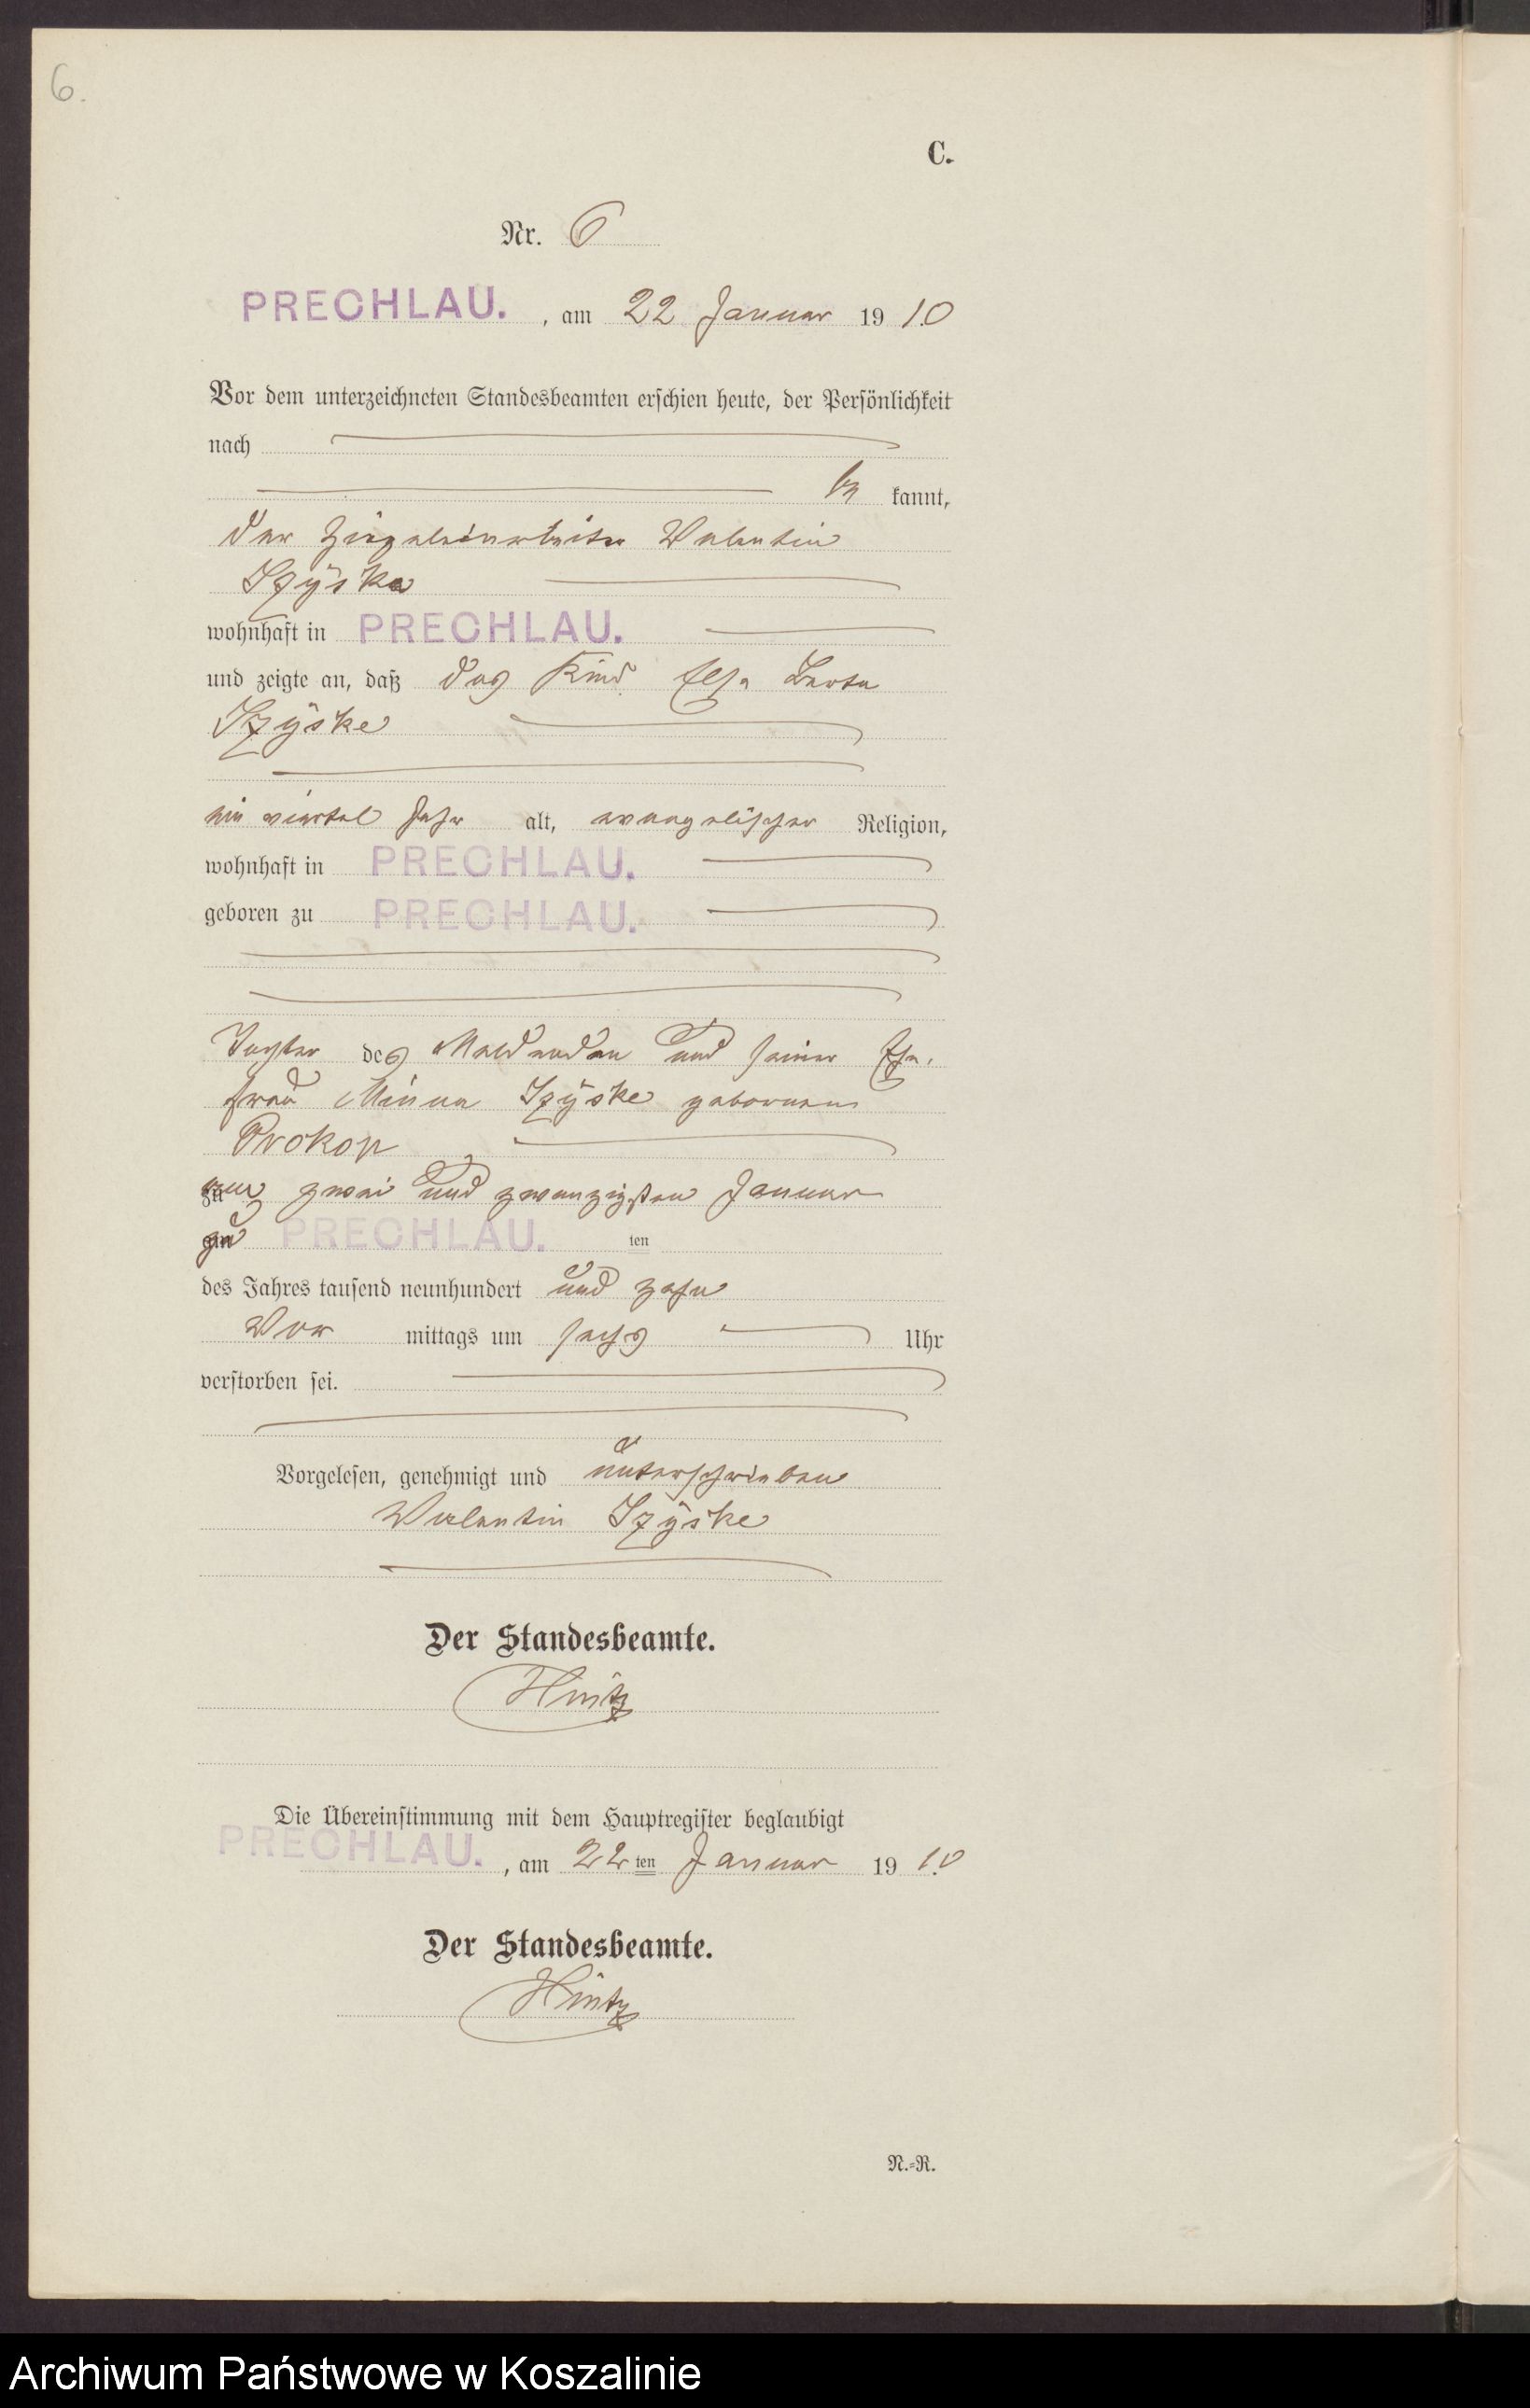 6.
C.
Nr. 6
PRECHLAU. , am 22 Januar 19 10
Vor dem unterzeichneten Standesbeamten erschien heute, der Persönlichkeit
nach
be kannt,
der Ziegeleiarbeiter Valentin
Szyske
wohnhaft in PRECHLAU.
und zeigte an, daß das Kind Elsa Berta
Szyske
ein viertel Jahr alt, evangelischer Religion,
wohnhaft in PRECHLAU.
geboren zu PRECHLAU.
Tochter des Meldenden und seiner Ehe-
frau Minna Szyske geborenen
Prokop
am zwei und zwanzigsten Januar
zu PRECHLAU. ten
des Jahres tausend neunhundert und zehn
Vor mittags um sechs Uhr
verstorben sei.
Vorgelesen, genehmigt und unterschrieben
Valentin Szyske
Der Standesbeamte.
Hintz
Die Übereinstimmung mit dem Hauptregister beglaubigt
PRECHLAU. , am 22 ten Januar 19 10
Der Standesbeamte.
Hintz
N.=R.
Archiwum Państwowe w Koszalinie